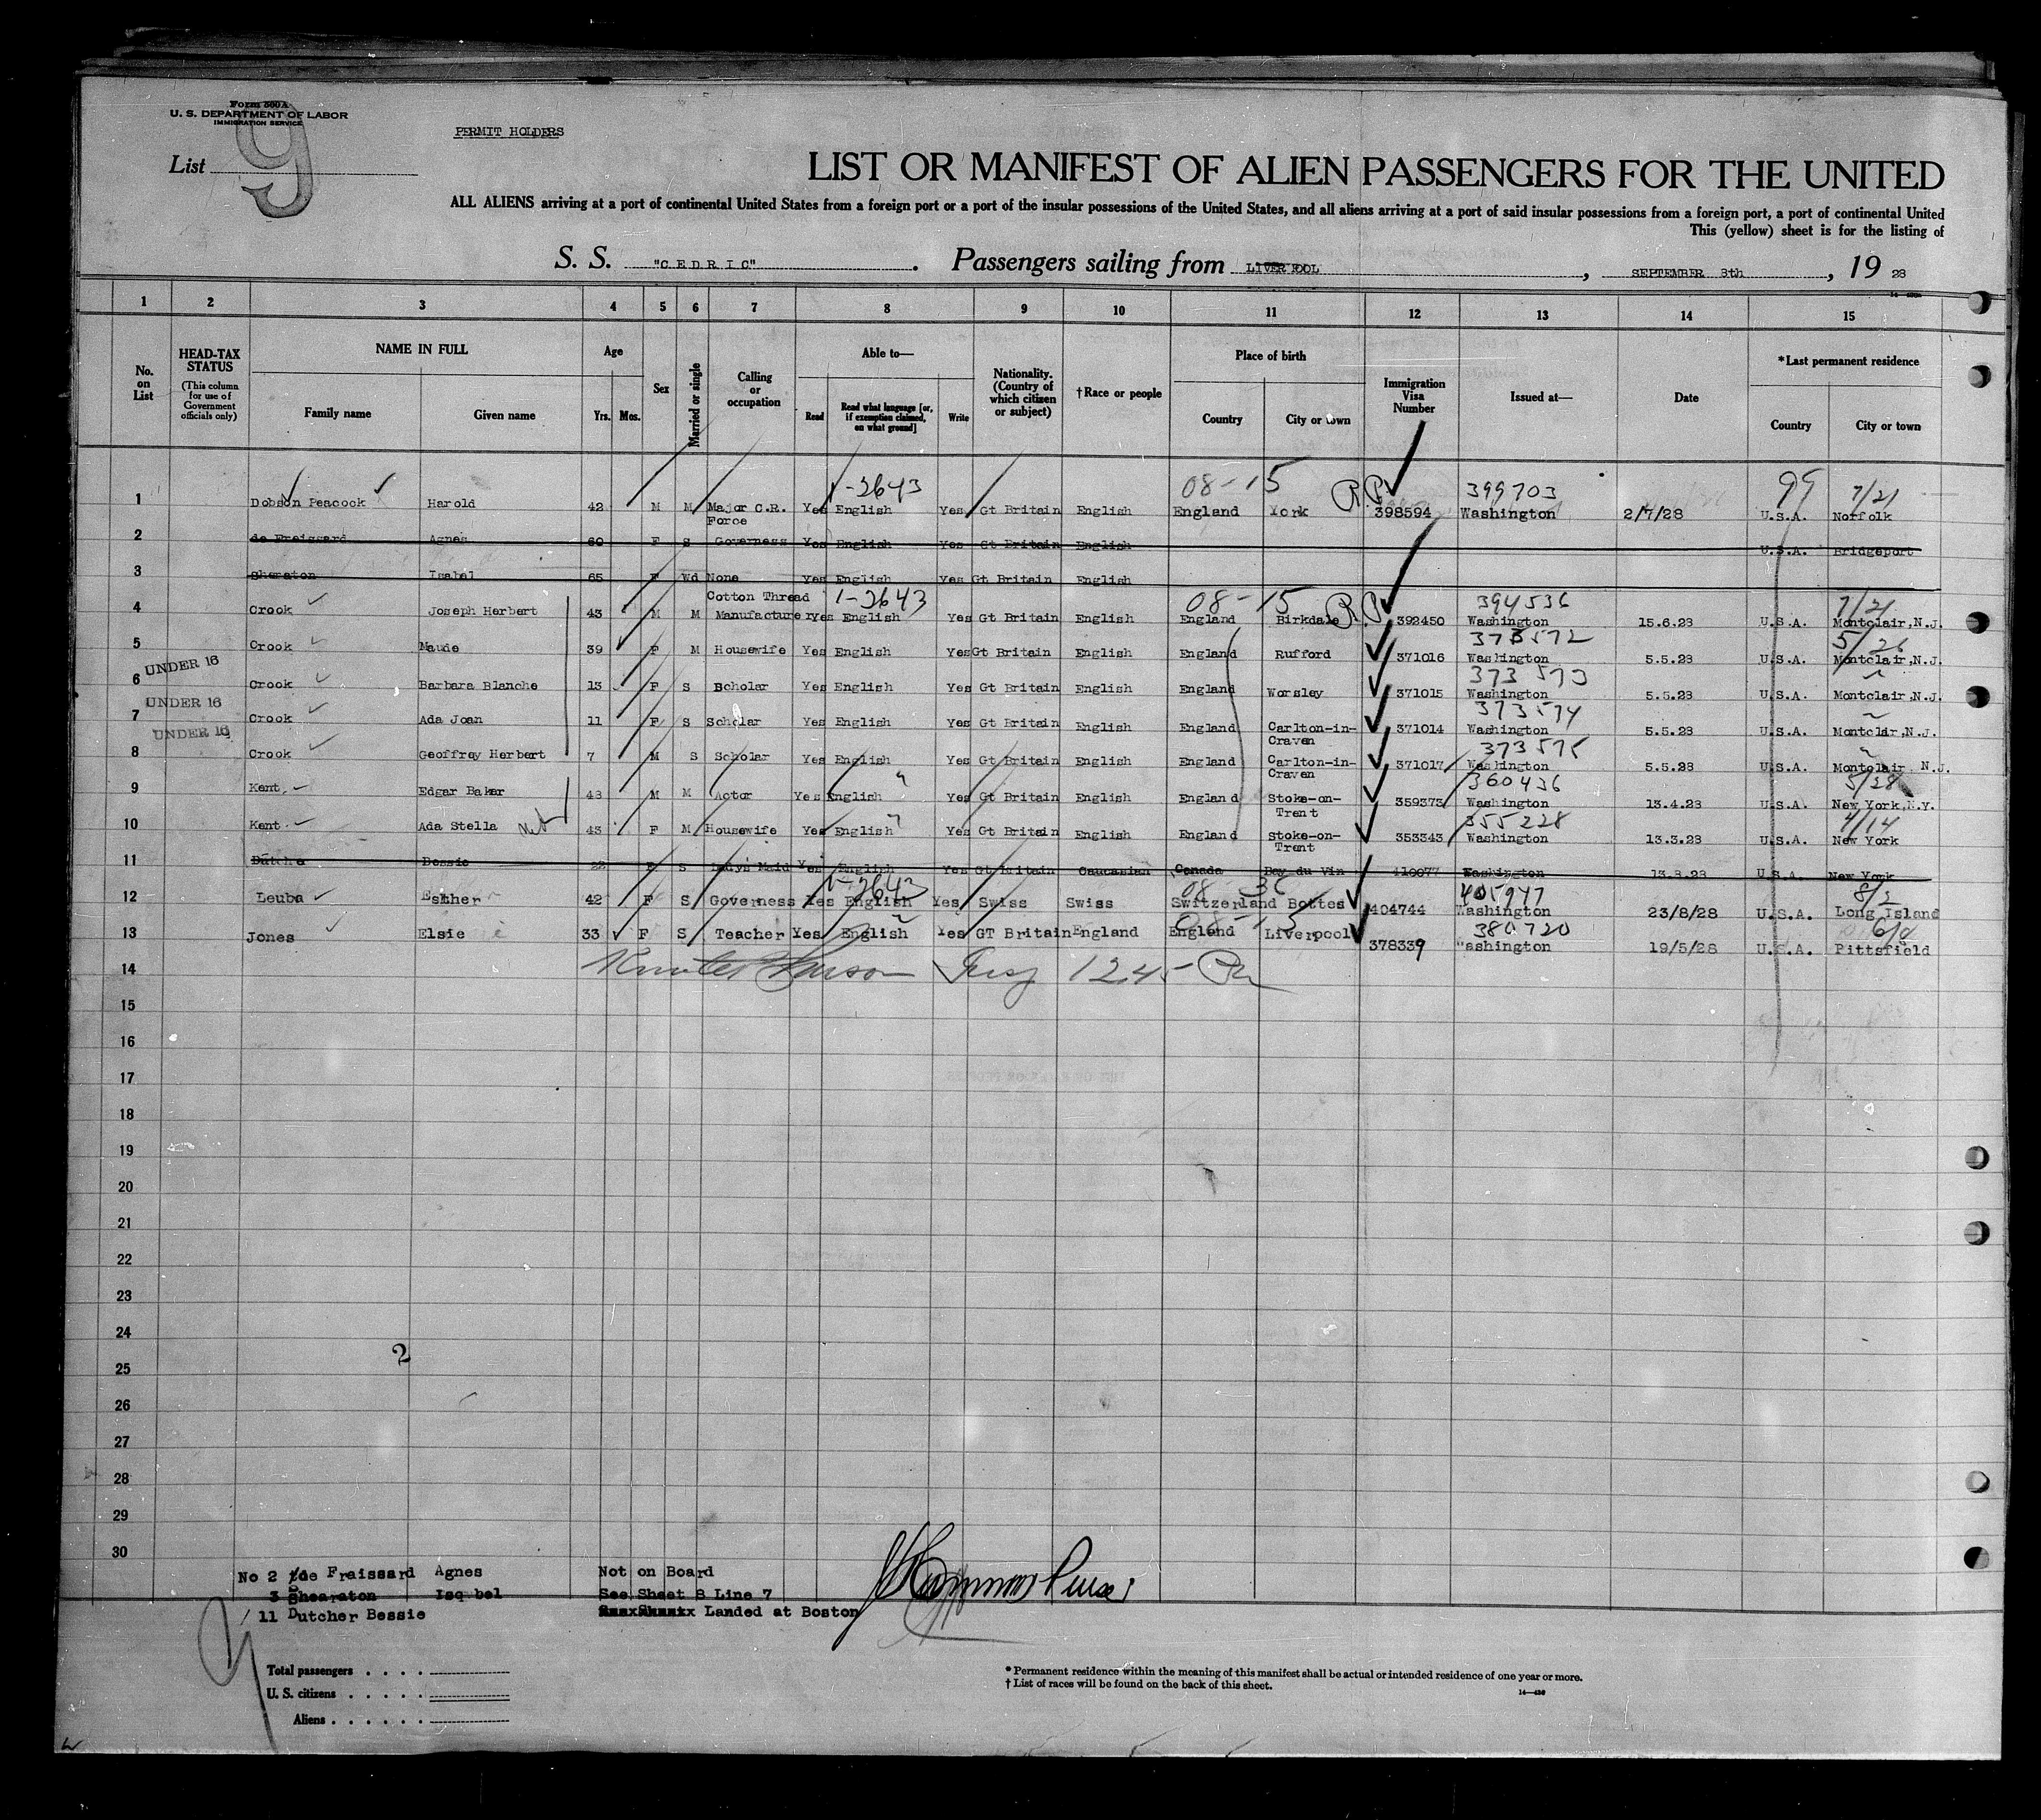 Form 500A
U. S. DEPARTMENT OF LABOR
IMMIGRATION SERVICE
PERMIT HOLDERS
List 9
LIST OR MANIFEST OF ALIEN PASSENGERS FOR THE UNITED
ALL ALIENS arriving at a port of continental United States from a foreign port or a port of the insular possessions of the United States, and all aliens arriving at a port of said insular possessions from a foreign port, a port of continental United
This (yellow) sheet is for the listing of
S. S. "CEDRIC". Passengers sailing from LIVERPOOL, SEPTEMBER 8th, 19 28
1 2 3 4 5 6 7 8 9 10 11 12 13 14 15
No. on List
HEAD-TAX STATUS (This column for use of Government officials only)
NAME IN FULL
Family name
Given name
Age
Yrs. Mos.
Sex
Married or single
Calling or occupation
Able to—
Read
Read what language [or, if exemption claimed, on what ground]
Write
Nationality. (Country of which citizen or subject)
†Race or people
Place of birth
Country
City or town
Immigration Visa Number
Issued at—
Date
*Last permanent residence
Country
City or town
1-2643 08-15 399703 99 7/21
1 Dobson Peacock Harold 42 M M Major C.R. Force Yes English Yes Gt Britain English England York 398594 Washington 2/7/28 U.S.A. Norfolk
2 de Freissard Agnes 60 F S Governess Yes English Yes Gt Britain English U.S.A. Bridgeport
3 Shearaton Isabel 65 F Wd None Yes English Yes Gt Britain English
1-2643 08-15 394536 7/21
4 Crook Joseph Herbert 43 M M Cotton Thread Manufacturer Yes English Yes Gt Britain English England Birkdale 392450 Washington 15.6.28 U.S.A. Montclair, N.J.
373572 5/26
5 Crook Maude 39 F M Housewife Yes English Yes Gt Britain English England Rufford 371016 Washington 5.5.28 U.S.A. Montclair, N.J.
UNDER 16 373573
6 Crook Barbara Blanche 13 F S Scholar Yes English Yes Gt Britain English England Worsley 371015 Washington 5.5.28 U.S.A. Montclair, N.J.
UNDER 16 373574
7 Crook Ada Joan 11 F S Scholar Yes English Yes Gt Britain English England Carlton-in-Craven 371014 Washington 5.5.28 U.S.A. Montclir, N.J.
UNDER 16 373575
8 Crook Geoffrey Herbert 7 M S Scholar Yes English Yes Gt Britain English England Carlton-in-Craven 371017 Washington 5.5.28 U.S.A. Montclair, N.J.
360436 5/28
9 Kent Edgar Baker 43 M M Actor Yes English Yes Gt Britain English England Stoke-on-Trent 359373 Washington 13.4.28 U.S.A. New York, N.Y.
355228 4/14
10 Kent Ada Stella 43 F M Housewife Yes English Yes Gt Britain English England Stoke-on-Trent 353343 Washington 13.3.28 U.S.A. New York
11 Bessie 22 F S Ladys Maid Yes English Yes Gt Britain Caucasian Canada Bay du Vin 410077 Washington 13.8.28 U.S.A. New York
1-2643 08 36 405947 8/2
12 Leuba Esther 42 F S Governess Yes English Yes Swiss Swiss Switzerland Bottes 404744 Washington 23/8/28 U.S.A. Long Island
08-15 380720
13 Jones Elsie 33 F S Teacher Yes English Yes GT Britain England England Liverpool 378339 Washington 19/5/28 U.S.A. Pittsfield
14 1245
15
16
17
18
19
20
21
22
23
24
2
25
26
27
28
29
30
No 2 de Fraissard Agnes Not on Board
3 Shearaton Isa bel See Sheet 8 Line 7
11 Dutcher Bessie Landed at Boston
Purser
Total passengers . . . .
U. S. citizens . . . . .
Aliens . . . . . .
* Permanent residence within the meaning of this manifest shall be actual or intended residence of one year or more.
† List of races will be found on the back of this sheet.